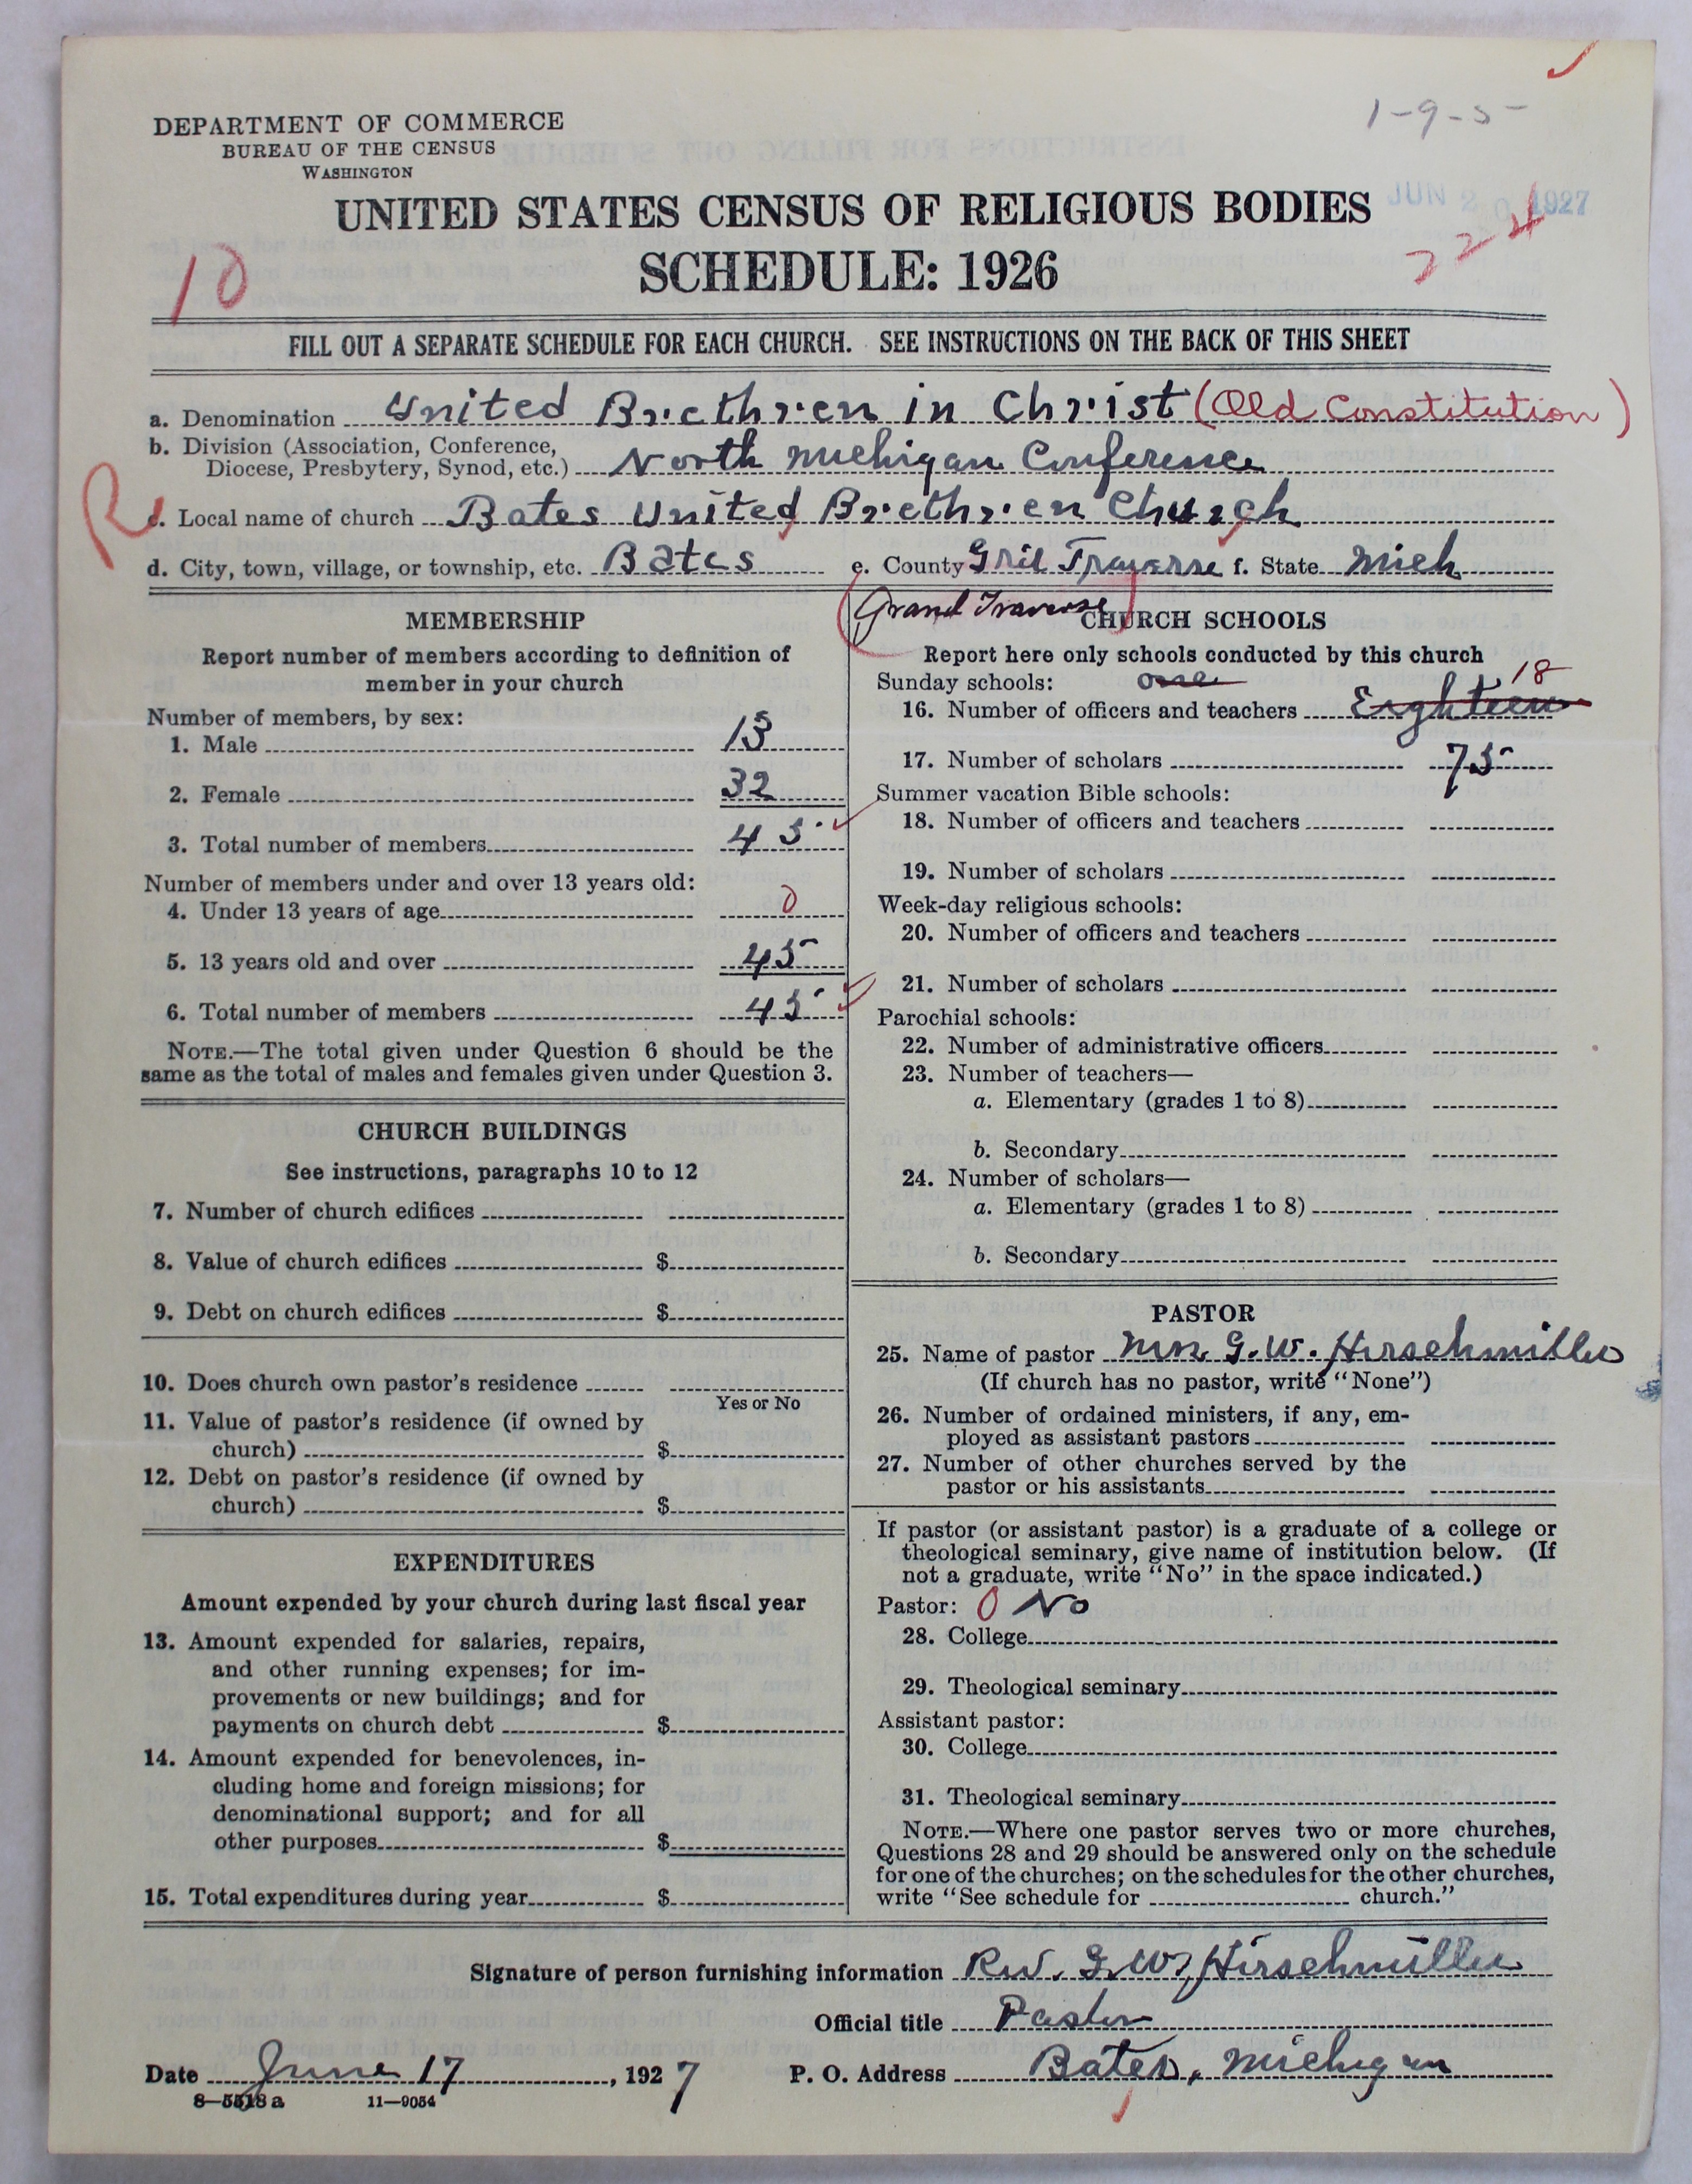 1-9-5-
DEPARTMENT OF COMMERCE
BUREAU OF THE CENSUS
WASHINGTON
JUN 20 1927
UNITED STATES CENSUS OF RELIGIOUS BODIES
224
SCHEDULE: 1926
10
FILL OUT A SEPARATE SCHEDULE FOR EACH CHURCH. SEE INSTRUCTIONS ON THE BACK OF THIS SHEET
a. Denomination United Brethren in Christ (Old Constitution)
b. Division (Association, Conference,
Diocese, Presbytery, Synod, etc.) North Michigan Conference
R
c. Local name of church Bates United Brethren Church
d. City, town, village, or township, etc. Bates e. County Grd Traverse f. State Mich
(Grand Traverse)
MEMBERSHIP
Report number of members according to definition of
member in your church
Number of members, by sex:
1. Male 13
2. Female 32
3. Total number of members 45
Number of members under and over 13 years old:
4. Under 13 years of age 0
5. 13 years old and over 45
6. Total number of members 45
NOTE.—The total given under Question 6 should be the
same as the total of males and females given under Question 3.
CHURCH BUILDINGS
See instructions, paragraphs 10 to 12
7. Number of church edifices
8. Value of church edifices $
9. Debt on church edifices $
10. Does church own pastor's residence
Yes or No
11. Value of pastor's residence (if owned by
church) $
12. Debt on pastor's residence (if owned by
church) $
EXPENDITURES
Amount expended by your church during last fiscal year
13. Amount expended for salaries, repairs,
and other running expenses; for im-
provements or new buildings; and for
payments on church debt $
14. Amount expended for benevolences, in-
cluding home and foreign missions; for
denominational support; and for all
other purposes $
15. Total expenditures during year $
CHURCH SCHOOLS
Report here only schools conducted by this church
Sunday schools: one 18
16. Number of officers and teachers Eighteen
17. Number of scholars 75
Summer vacation Bible schools:
18. Number of officers and teachers
19. Number of scholars
Week-day religious schools:
20. Number of officers and teachers
21. Number of scholars
Parochial schools:
22. Number of administrative officers
23. Number of teachers—
a. Elementary (grades 1 to 8)
b. Secondary
24. Number of scholars—
a. Elementary (grades 1 to 8)
b. Secondary
PASTOR
25. Name of pastor Mrs. G. W. Hirschmiller
(If church has no pastor, write "None")
26. Number of ordained ministers, if any, em-
ployed as assistant pastors
27. Number of other churches served by the
pastor or his assistants
If pastor (or assistant pastor) is a graduate of a college or
theological seminary, give name of institution below. (If
not a graduate, write "No" in the space indicated.)
Pastor: 0 No
28. College
29. Theological seminary
Assistant pastor:
30. College
31. Theological seminary
NOTE.—Where one pastor serves two or more churches,
Questions 28 and 29 should be answered only on the schedule
for one of the churches; on the schedules for the other churches,
write "See schedule for church."
Signature of person furnishing information Rev. G. W. Hirschmiller
Official title Pastor
Date June 17, 1927 P. O. Address Bates, Michigan
8—5518 a 11—9054